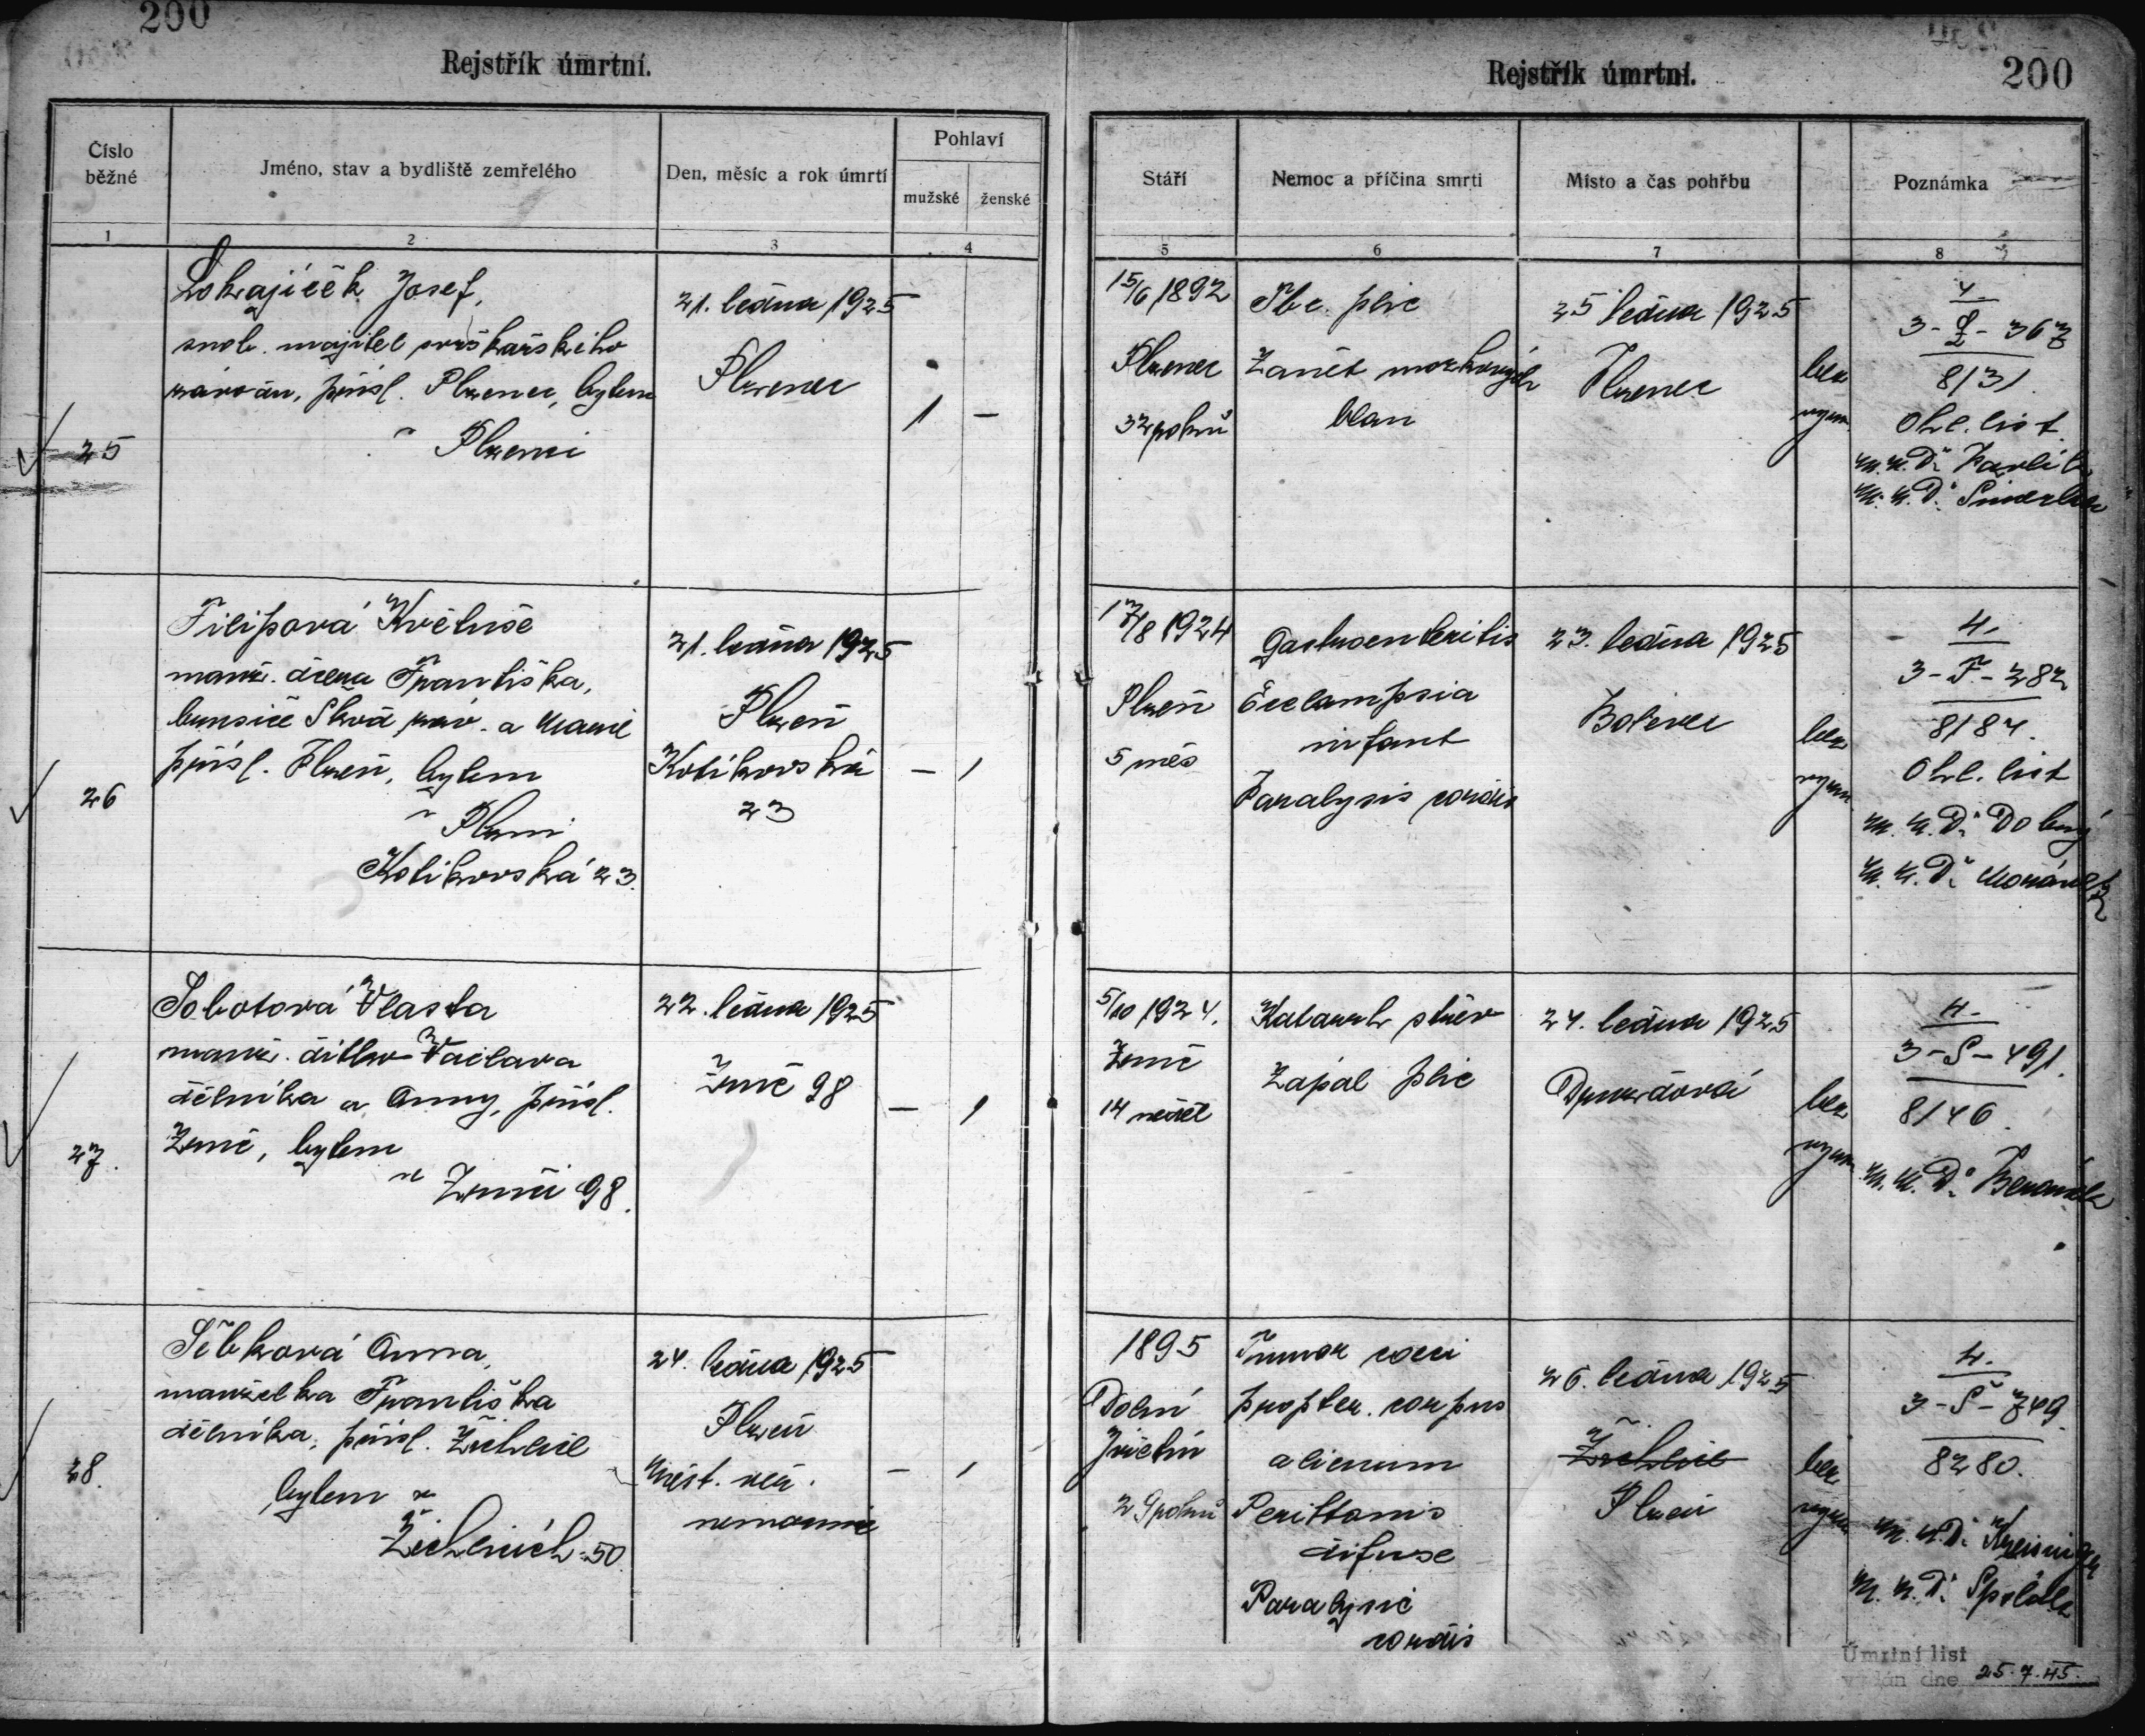 200
Rejstřík úmrtní.
Číslo běžné
Jméno, stav a bydliště zemřelého
Den, měsíc a rok úmrtí
Pohlaví
mužské
ženské
1
2
3
4
25
Lokajíček Josef,
svob. majitel
přísl . Plzenec, bytem
v Plzenci
21. ledna 1925
Plzenec
1
–
26
Filipová Květuše
manž. dcera Františka,
Škod. záv. a Marie
přísl. Plzeň, bytem
v Plzni
Kotíkovská 23.
21. ledna 1925
Plzeň
Kotíkovská
23
–
1
27.
Sobotová Vlasta
manž. dítko Václava
dělníka a Anny, přísl.
Zruč, bytem
v Zruči 98.
22. ledna 1925
Zruč 98
–
1
28.
Šíbková Anna,
manželka Františka
dělníka, přísl. Žichlice
bytem v
Žichlicích 50
24. ledna 1925
Plzeň
Měst. veř.
nemocnice
–
1
Rejstřík úmrtní.
200
Stáří
Nemoc a příčina smrti
Místo a čas pohřbu
Poznámka
5
6
7
8
15/6 1892
Plzenec
32 roků
Tbc. plic
Zánět mozkových
blan
25 ledna 1925
Plzenec
bez
4.
3 - L - 367
8131
Ohl. list
M. U. Dr. Pavlík
17/8 1924
Plzeň
5 měs
Gastroenteritis
Eclampsia
infant
Paralysis cordis
23. ledna 1925
Bolevec
bez
4.
3 - F - 282
8184.
Ohl. list
M. U. Dr. Dobrý
M. U. Dr. Morávek
5/10 1924.
Zruč
14 neděl
Katarrh střev
Zápal plic
24. ledna 1925
Druzdová
bez
4.
3 - S - 491.
8146.
M. U. Dr. Beránek
1895
Dolní
29 roků
Tumor coeci
propter. corpus
alienum
Perittonis
difuse
Paralysis
cordis
26. ledna 1925
Žichlice
Plzeň
bez
4.
3 - Š - 749
8280.
M. U. Dr. Kreisinger
M. U. Dr. Špelák
Úmrtní list
vydán dne 25. 7. 45.